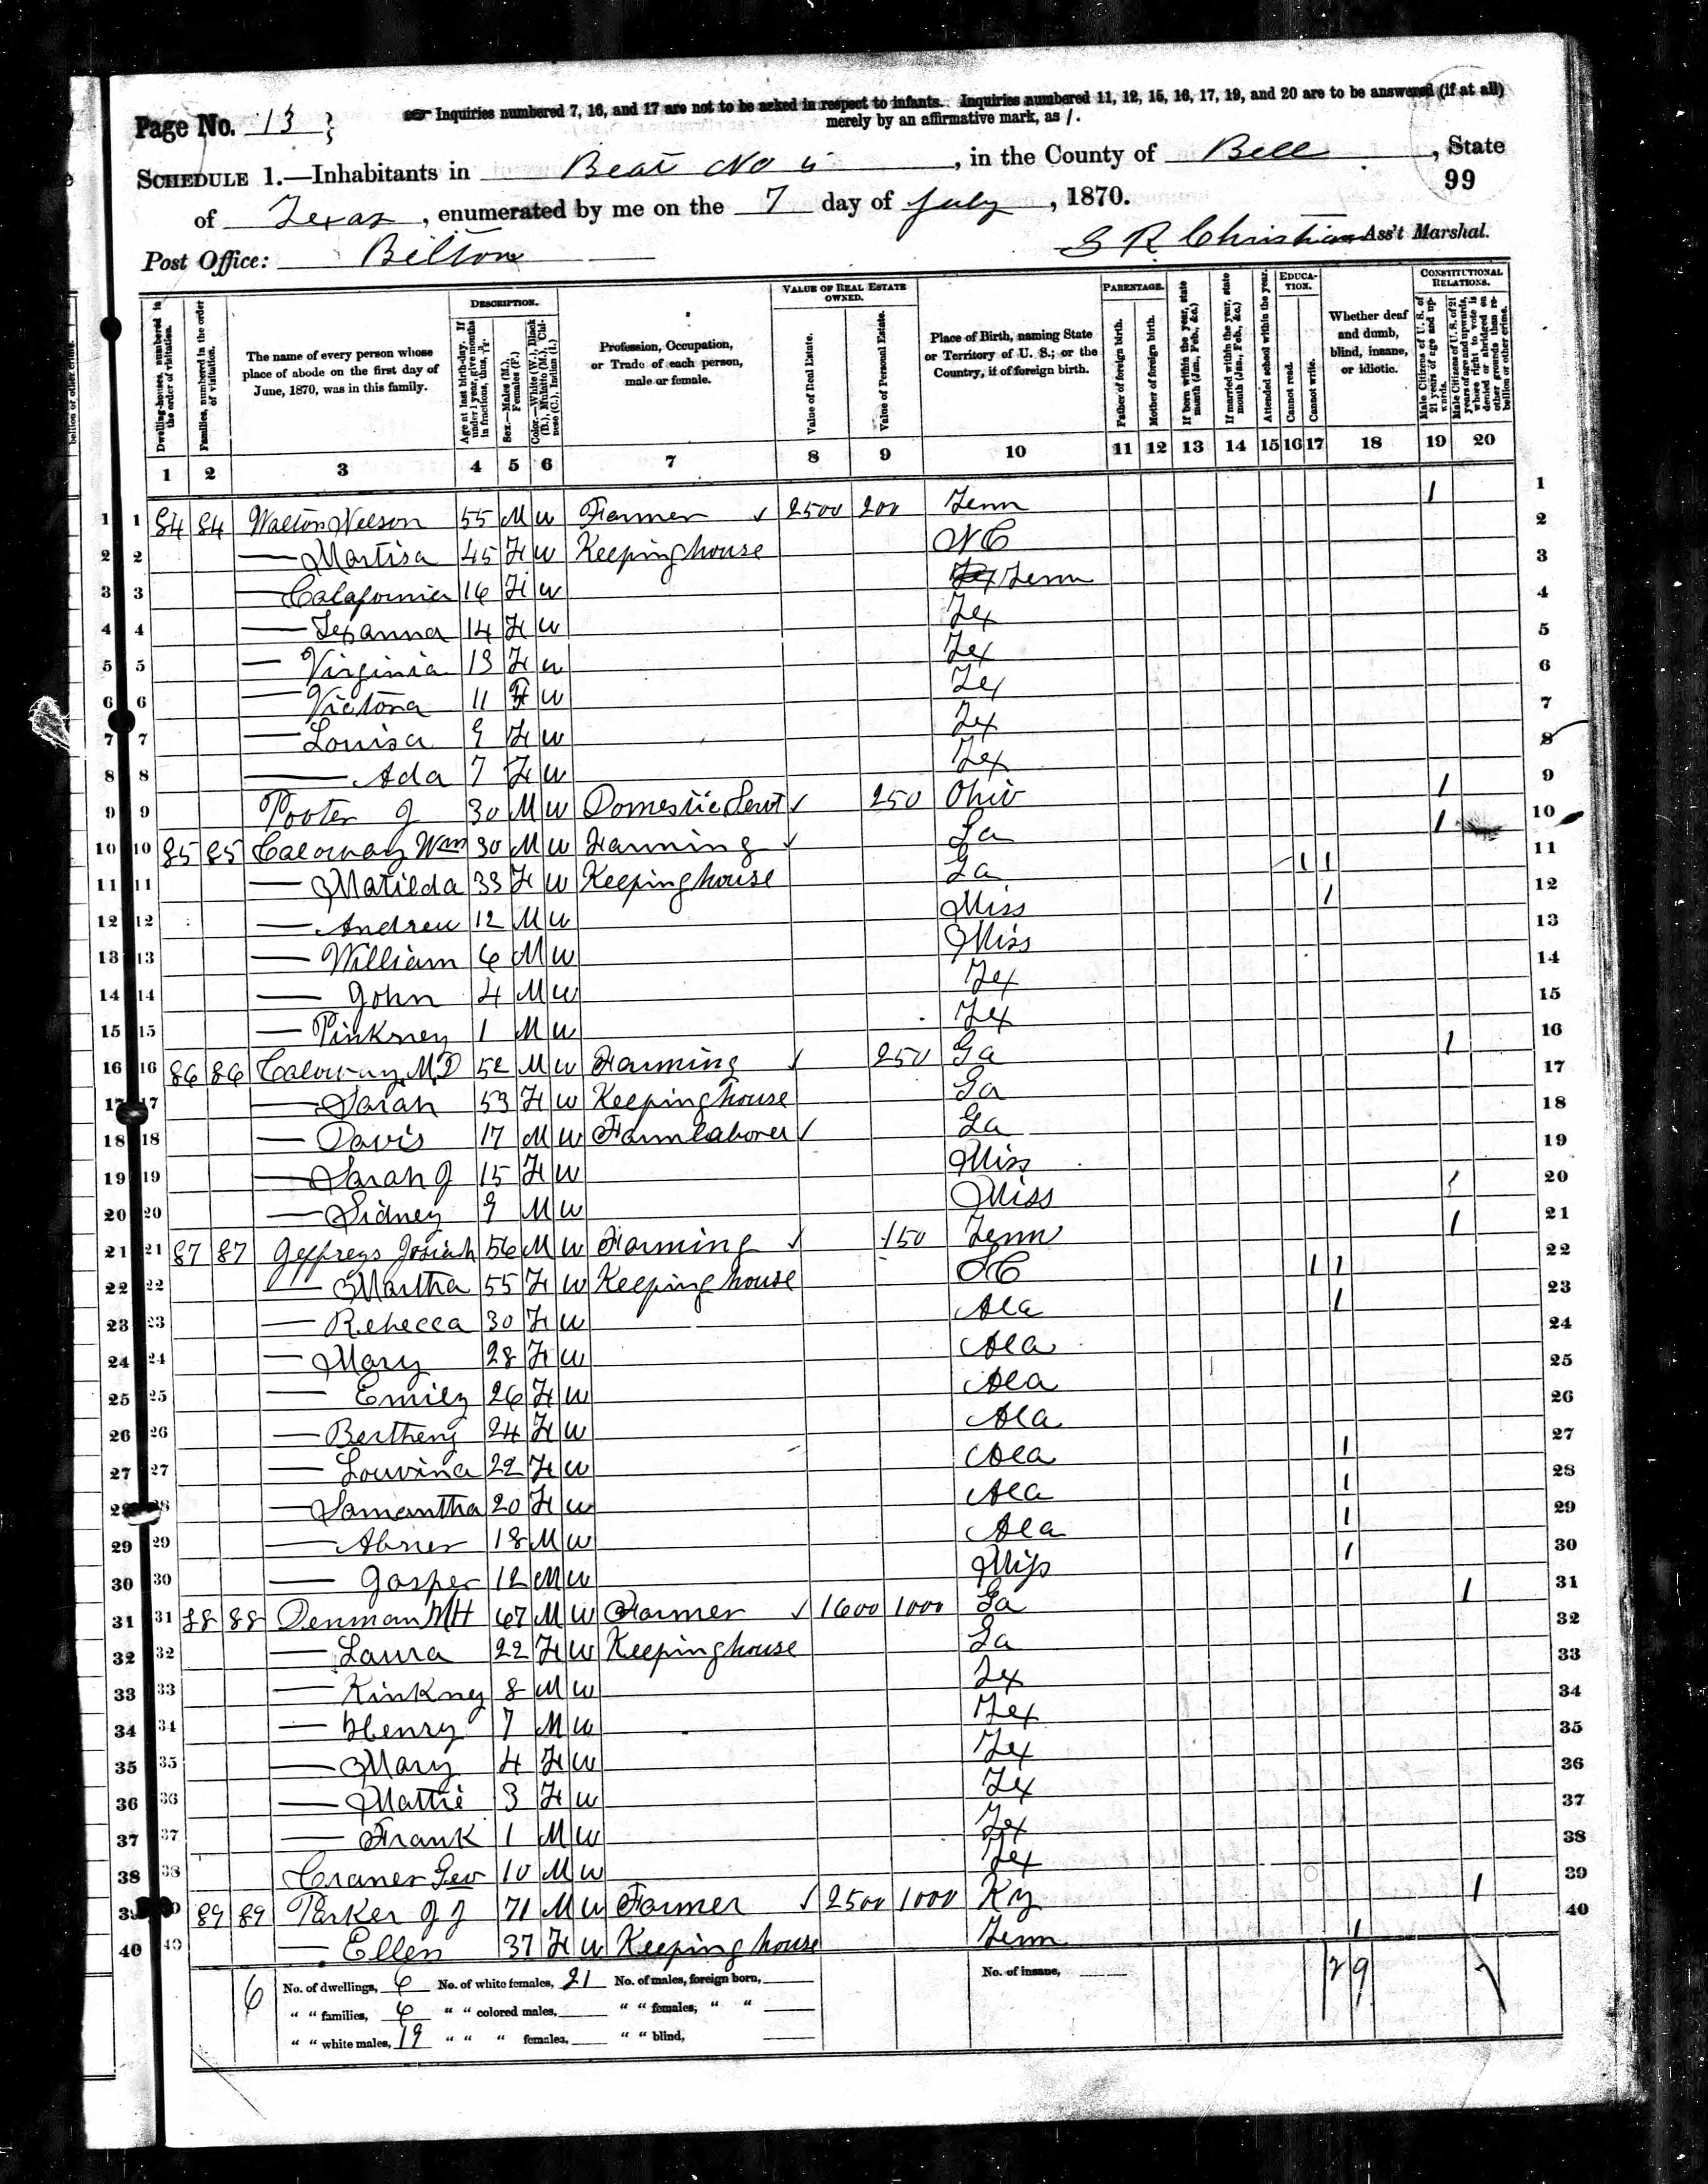 Page No. 13
Inquiries numbered 7, 16, and 17 are not to be asked in respect to infants. Inquiries numbered 11, 12, 15, 16, 17, 19, and 20 are to be answered (if at all)
merely by an affirmative mark, as /.
SCHEDULE 1.—Inhabitants in Beat No , in the County of Bell , State
99
of Texas , enumerated by me on the 7 day of July , 1870.
Post Office: Bilton
S R Christian Ass't Marshal.
Dwelling-houses, numbered in the order of visitation.
Families, numbered in the order of visitation.
The name of every person whose place of abode on the first day of June, 1870, was in this family.
DESCRIPTION.
Age at last birth-day. If under 1 year, give months in fractions, thus, 3/12.
Sex.—Males (M.), Females (F.)
Color.—White (W.), Black (B.), Mulatto (M.), Chinese (C.), Indian (I.)
Profession, Occupation, or Trade of each person, male or female.
VALUE OF REAL ESTATE OWNED.
Value of Real Estate.
Value of Personal Estate.
Place of Birth, naming State or Territory of U. S.; or the Country, if of foreign birth.
PARENTAGE.
Father of foreign birth.
Mother of foreign birth.
If born within the year, state month (Jan., Feb., &c.)
If married within the year, state month (Jan., Feb., &c.)
Attended school within the year.
EDUCATION.
Cannot read.
Cannot write.
Whether deaf and dumb, blind, insane, or idiotic.
CONSTITUTIONAL RELATIONS.
Male Citizens of U. S. of 21 years of age and upwards.
Male Citizens of U. S. of 21 years of age and upwards, whose right to vote is denied or abridged on other grounds than rebellion or other crime.
1 2 3 4 5 6 7 8 9 10 11 12 13 14 15 16 17 18 19 20
1 1 84 84 Walton Nelson 55 M W Farmer ✓ 2500 200 Tenn 1 1
2 2 — Martisa 45 F W Keeping house NC 2
3 3 — Calafornia 16 F W Tenn 3
4 4 — Texanna 14 F W Tex 4
5 5 — Virginia 13 F W Tex 5
6 6 — Victoria 11 F W Tex 6
7 7 — Louisa 9 F W Tex 7
8 8 — Ada 7 F W Tex 8
9 9 Porter J 30 M W Domestic Servt ✓ 250 Ohio 1 9
10 10 85 85 Caloway Wm 30 M W Farming ✓ Ga 1 10
11 11 — Matilda 33 F W Keeping house Ga 1 1 11
12 12 — Andrew 12 M W Miss 1 12
13 13 — William 6 M W Miss 13
14 14 — John 4 M W Tex 14
15 15 — Pinkney 1 M W Tex 15
16 16 86 86 Caloway M D 52 M W Farming ✓ 250 Ga 1 16
17 17 — Sarah 53 F W Keeping house Ga 17
18 18 — Davis 17 M W Farm laborer ✓ Ga 18
19 19 — Sarah J 15 F W Miss 19
20 20 — Sidney 9 M W Miss 1 20
21 21 87 87 Jeffreys Josiah 56 M W Farming ✓ 150 Tenn 1 21
22 22 — Martha 55 F W Keeping house SC 1 1 22
23 23 — Rebecca 30 F W Ala 1 23
24 24 — Mary 28 F W Ala 24
25 25 — Emily 26 F W Ala 25
26 26 — Bertheny 24 F W Ala 26
27 27 — Louvina 22 F W Ala 1 27
28 28 — Samantha 20 F W Ala 1 28
29 29 — Abner 18 M W Ala 1 29
30 30 — Jasper 12 M W Miss 1 30
31 31 88 88 Denman M H 67 M W Farmer ✓ 1600 1000 Ga 1 31
32 32 — Laura 22 F W Keeping house Ga 32
33 33 — Kinkney 8 M W Tex 33
34 34 — Henry 7 M W Tex 34
35 35 — Mary 4 F W Tex 35
36 36 — Mattie 3 F W Tex 36
37 37 — Frank 1 M W Tex 37
38 38 Craner Geo 10 M W Tex 38
39 39 89 89 Parker J J 71 M W Farmer ✓ 2500 1000 Ky 1 39
40 40 — Ellen 37 F W Keeping house Tenn 1 40
6 No. of dwellings, 6 No. of white females, 21 No. of males, foreign born, No. of insane, 2 9 7
" " families, 6 " " colored males, " " females, " "
" " white males, 19 " " " females, " " blind,